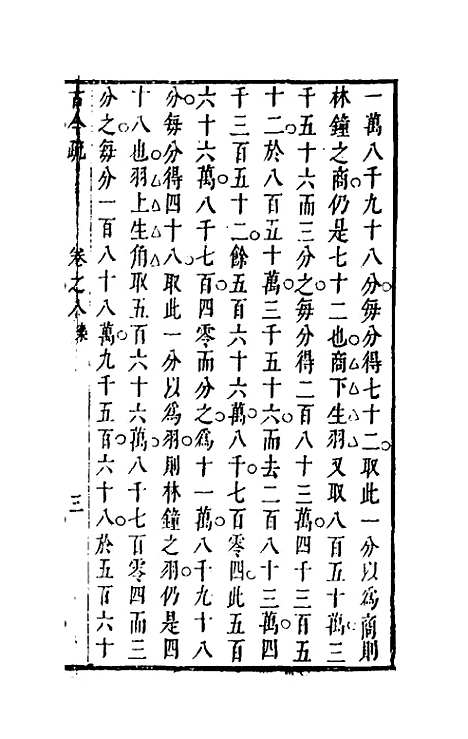 一萬八千九十八分每分得七十二取此一分以爲商則
林鐘之商仍是七十二也商下生羽又取八百五十萬三
千五十六而三分之每分得二百八十三萬四千三百五
十二於八百五十萬三千五十六而去二百八十三萬四
千三百五十二餘五百六十六萬八千七百零四此五百
六十六萬八千七百四零而分之爲十一萬八千九十八
分每分得四十八取此一分以爲羽則林鐘之羽仍是四
十八也羽上生角取五百六十六萬八千七百零四而三
分之每分一百八十八萬九千五百六十八於五百六十
古今疏
卷之八
樂
三